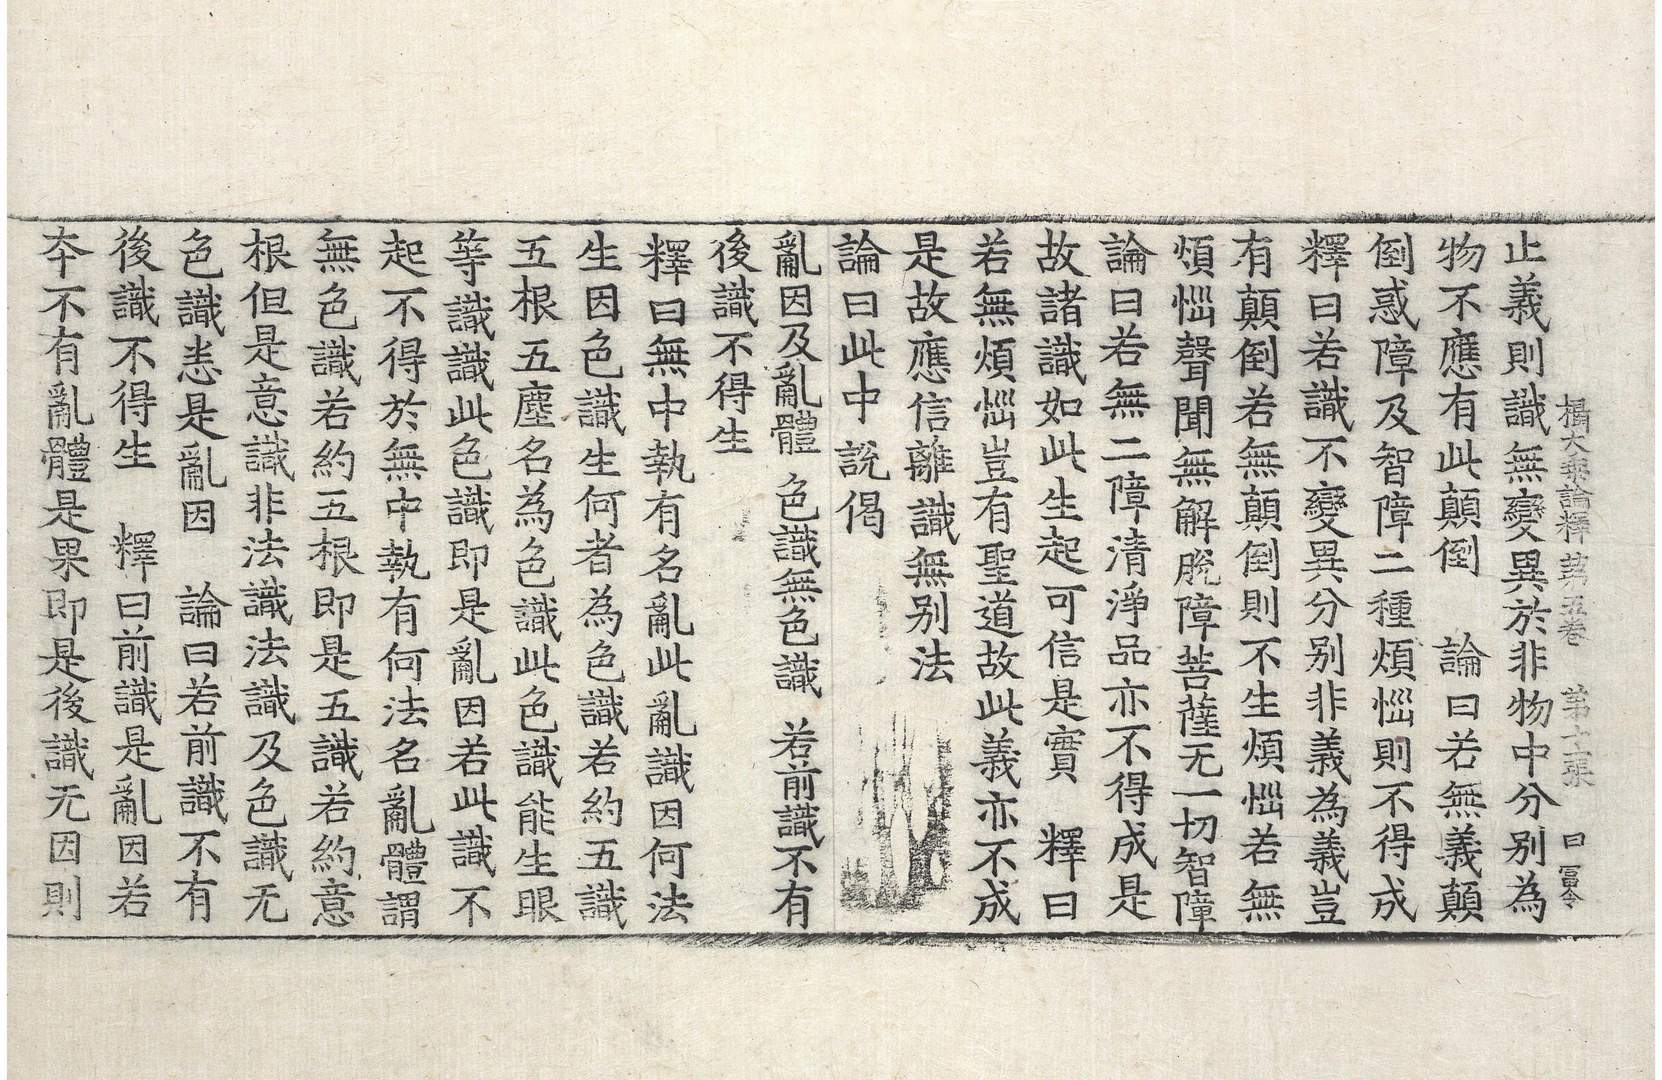 攝大乘論釋苐五卷 第十張 曰 冨令
止義則識無變異於非物中分別為
物不應有此顛倒 論曰若無義顛
倒惑障及智障二種煩惱則不得成
釋曰若識不變異分別非義為義豈
有顛倒若無顛倒則不生煩惱若無
煩惱聲聞無解脫障菩薩无一切智障
論曰若無二障清淨品亦不得成是
故諸識如此生起可信是實 釋曰
若無煩惱豈有聖道故此義亦不成
是故應信離識無別法
論曰此中說偈
亂因及亂體 色識無色識 若前識不有
後識不得生
釋曰無中執有名亂此亂識因何法
生因色識生何者為色識若約五識
五根五塵名為色識此色識能生眼
等識識此色識即是亂因若此識不
起不得於無中執有何法名亂體謂
無色識若約五根即是五識若約意
根但是意識非法識法識及色識无
色識恚是亂因 論曰若前識不有
後識不得生 釋曰前識是亂因若
夲不有亂體是果即是後識无因則